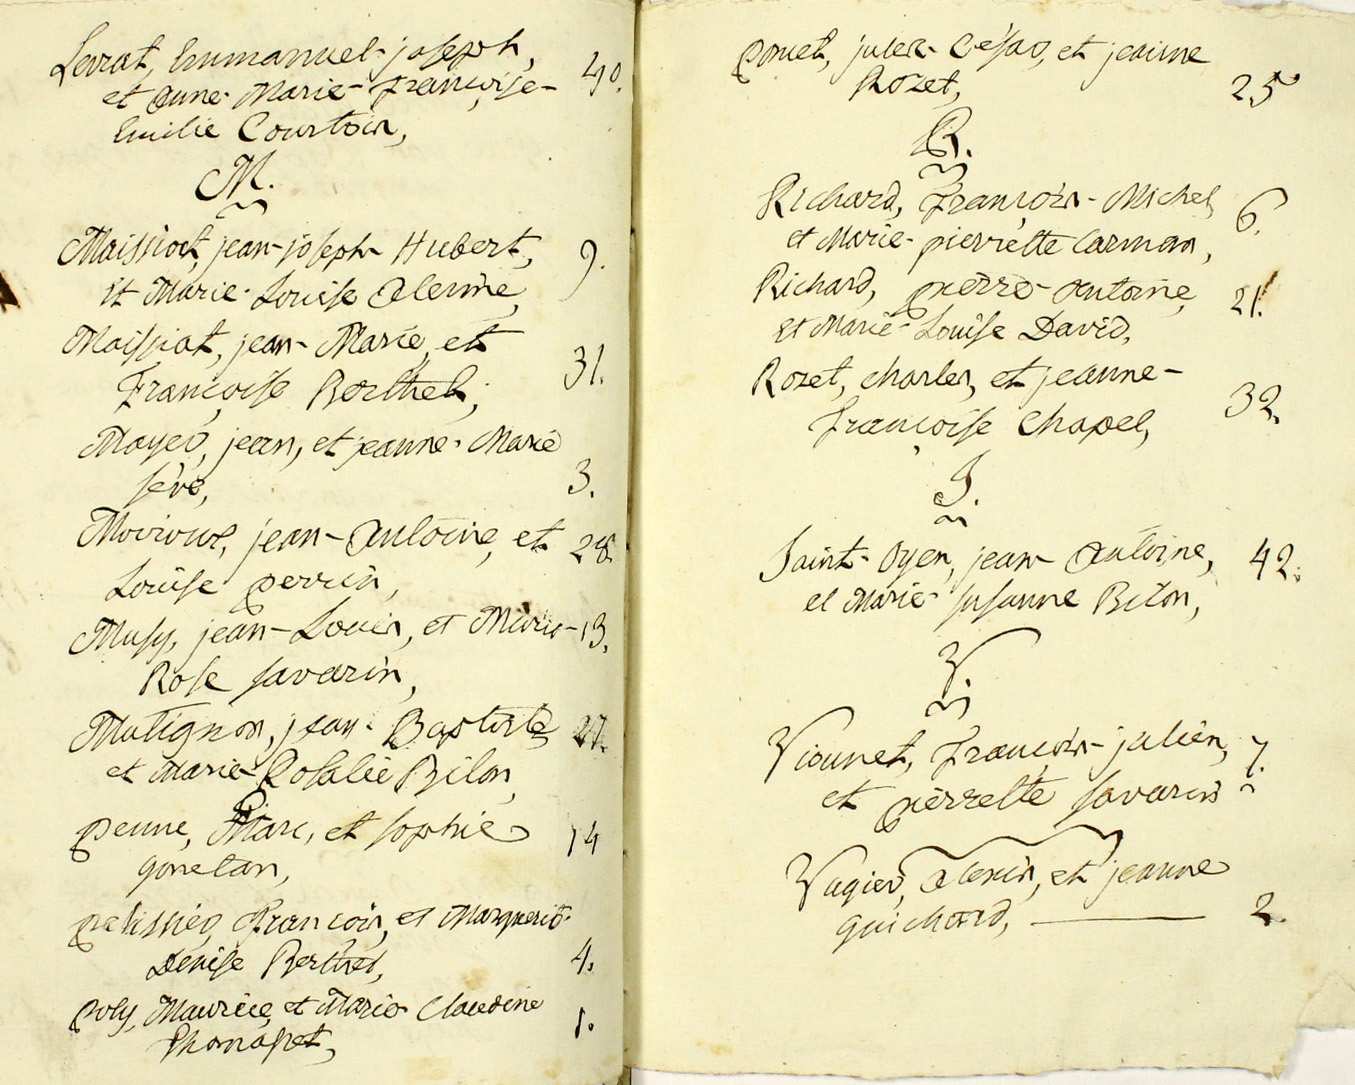 Levrat, Emmanuel-joseph,
et anne-Marie-Françoise- 40.
Emilie Courtois,
M.
Maissiat, jean-joseph-Hubert,
et Marie-Louise alerine, 9.
Maissiat, jean-Marie, et
Françoise Berthet, 31.
Mayer, jean, et jeanne-Marie
seve, 3.
jean-antoine, et 28.
Louise perrin,
Musy, jean-Louis, et Marie- 13.
Rose savarin,
Mutignon, jean-Baptiste 27.
et Marie-Rosalie Bilon,
P.
penne, Marc, et sophie 14
gonetan,
pelissier, François, et Marguerite-
Denise Berthet, 4.
poly, Maurice, et Marie Claudine
1.
jules-César, et jeanne
Rozet, 25
R.
Richard, François-Michel
et Marie-pierrette Carman, 6.
Richard, pierre-antoine, 21.
et Marie-Louise David,
Rozet, charles, et jeanne-
françoise Chapel, 32.
S.
Saint-Oyen, jean-antoine, 42.
et Marie-susanne Bilon,
V.
Viounet, François-julien, 7.
et pierrette savarin
Vagier, alexis, et jeanne
guichard, 2.